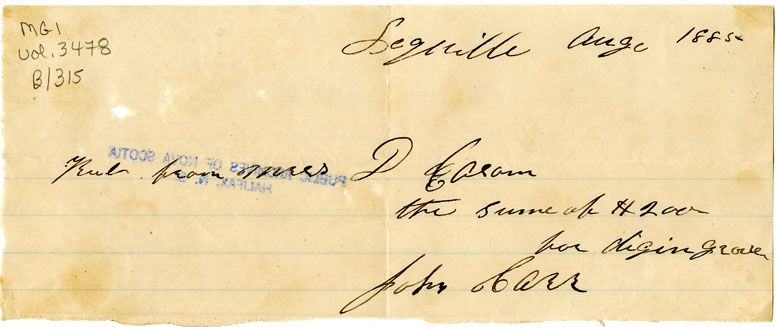 MG1
vol. 3478
B/315
Lequille Augc 1885
Recd from Mrss D Eason
PUBLIC ARCHIVES OF NOVA SCOTIA
HALIFAX, N. S.
the sume of $200
for digin grave
John Carr